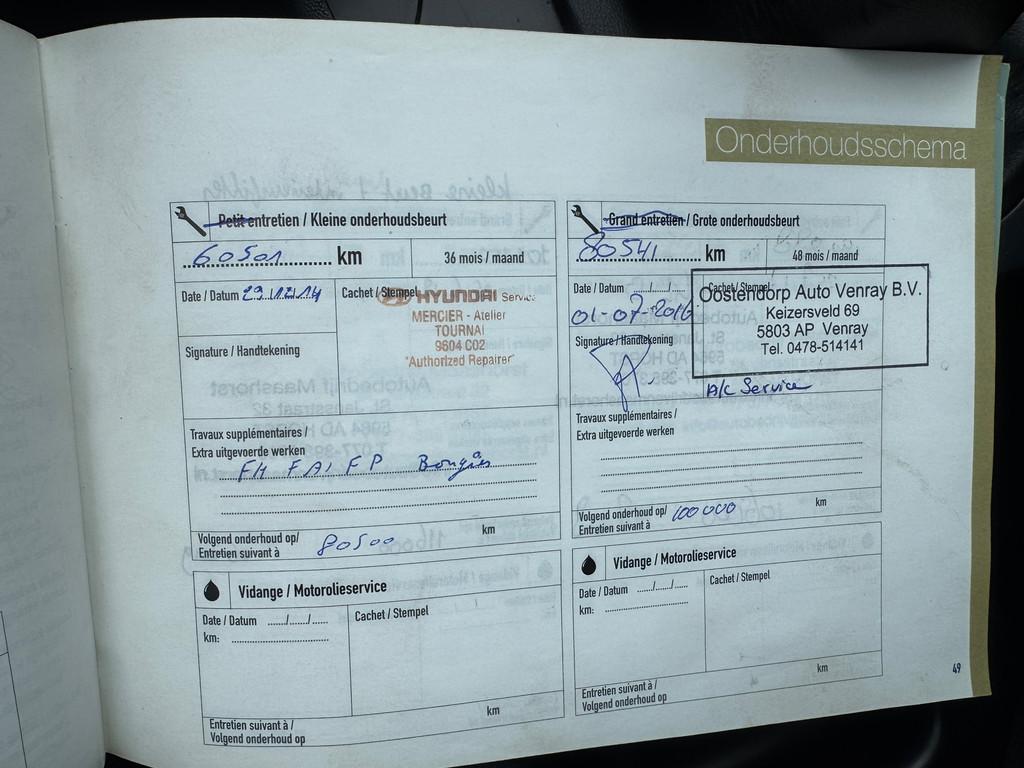 Onderhoudsschema
Petit entretien / Kleine onderhoudsbeurt
60501 km
36 mois / maand
Date / Datum 29/12/14
Cachet / Stempel
HYUNDAI Service
MERCIER - Atelier
TOURNAI
9604 C02
"Authorized Repairer"
Signature / Handtekening
Travaux supplémentaires /
Extra uitgevoerde werken
FH FA, FP Bougies
Volgend onderhoud op/
Entretien suivant à 80500 km
Vidange / Motorolieservice
Date / Datum ....../....../......
km:
Cachet / Stempel
Entretien suivant à /
Volgend onderhoud op
km
Grand entretien / Grote onderhoudsbeurt
80541 km
48 mois / maand
Date / Datum ....../....../......
01-07-2016
Cachet / Stempel
Oostendorp Auto Venray B.V.
Keizersveld 69
5803 AP Venray
Tel. 0478-514141
Signature / Handtekening
A/C Service
Travaux supplémentaires /
Extra uitgevoerde werken
Volgend onderhoud op/
Entretien suivant à 100000 km
Vidange / Motorolieservice
Date / Datum ....../....../......
km:
Cachet / Stempel
Entretien suivant à /
Volgend onderhoud op
km
49